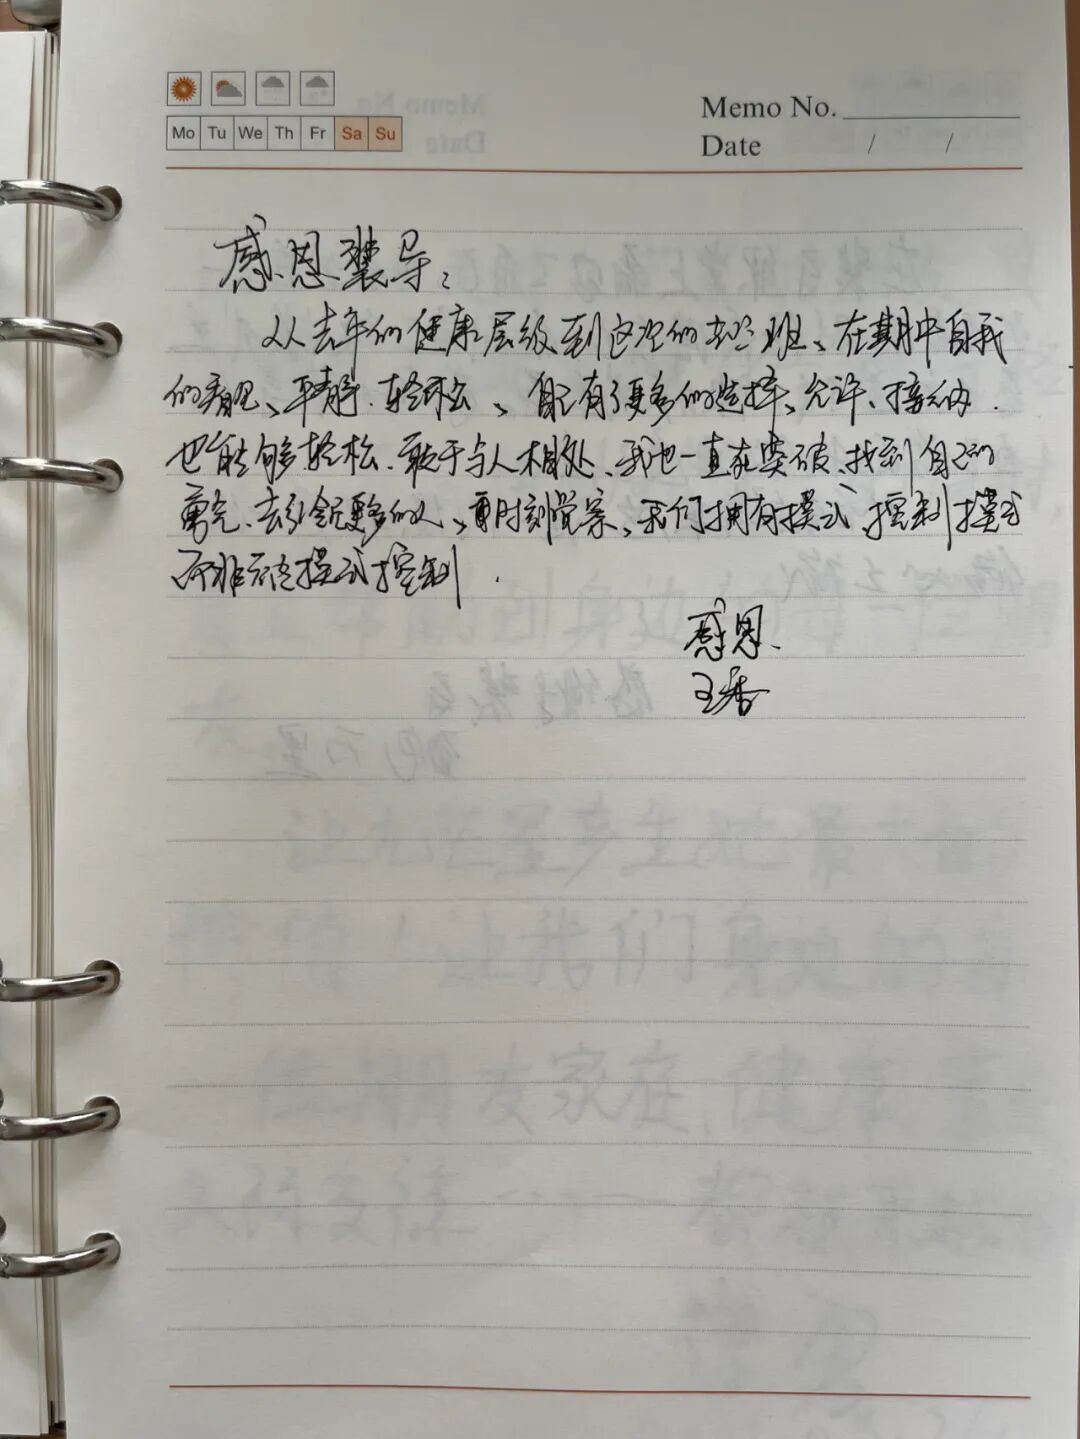 Memo No.
Mo Tu We Th Fr Sa Su
Date / /
感恩裴导：
从去年的健康层级到这次的 班、在期中自我
的 、平静、轻松、自己有了更多的选择、允许、接纳.
也能够轻松、敢于与人相处、我也一直在突破、找到自己的
去引领更多的人、要时刻觉察、我们拥有模式、控制模式
而非被模式控制.
感恩、
王香